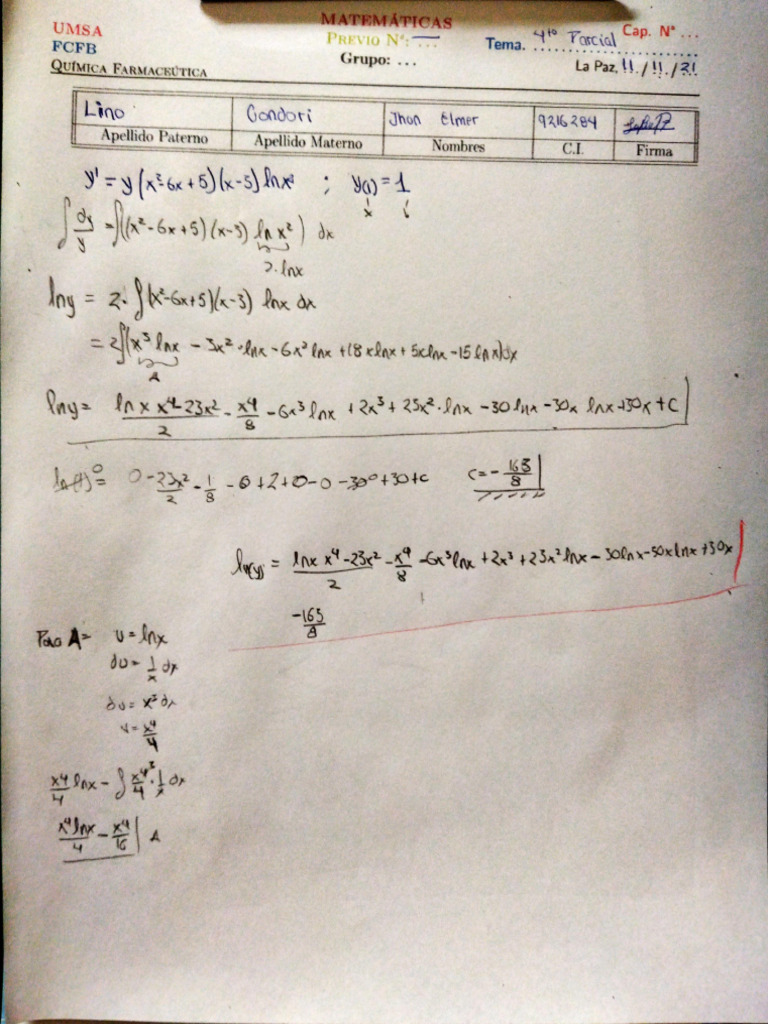 UMSA
FCFB
QUÍMICA FARMACEÚTICA
MATEMÁTICAS
PREVIO Nº: ...
Grupo: ...
Tema. 4to Parcial Cap. Nº ...
La Paz, 11 / 11 / 21
Lino Condori Jhon Elmer 9216284
Apellido Paterno Apellido Materno Nombres C.I. Firma
y' = y(x²-6x+5)(x-3) ln x² ; y(1) = 1
∫ dy/y = ∫((x²-6x+5)(x-3) ln x²) dx
2·lnx
lny = 2·∫(x²-6x+5)(x-3) lnx dx
= 2∫(x³ lnx - 3x²·lnx - 6x² lnx + 18xlnx + 5xlnx - 15 lnx)dx
A
lny = (lnx x⁴ - 23x²)/2 - x⁴/8 - 6x³ lnx + 2x³ + 23x²·lnx - 30lnx - 30x lnx + 30x + C
ln(1)⁰ = 0 - 23x²/2 - 1/8 - 0 + 2 + 0 - 0 - 30⁰ + 30 + c c = -163/8
ln(y) = (lnx x⁴ - 23x²)/2 - x⁴/8 - 6x³lnx + 2x³ + 23x²lnx - 30lnx - 30xlnx + 30x
-163/8
Para A = u = lnx
du = 1/x dx
dv = x³dx
v = x⁴/4
x⁴/4 lnx - ∫ x⁴³/4 · 1/x dx
x⁴lnx/4 - x⁴/16 | A